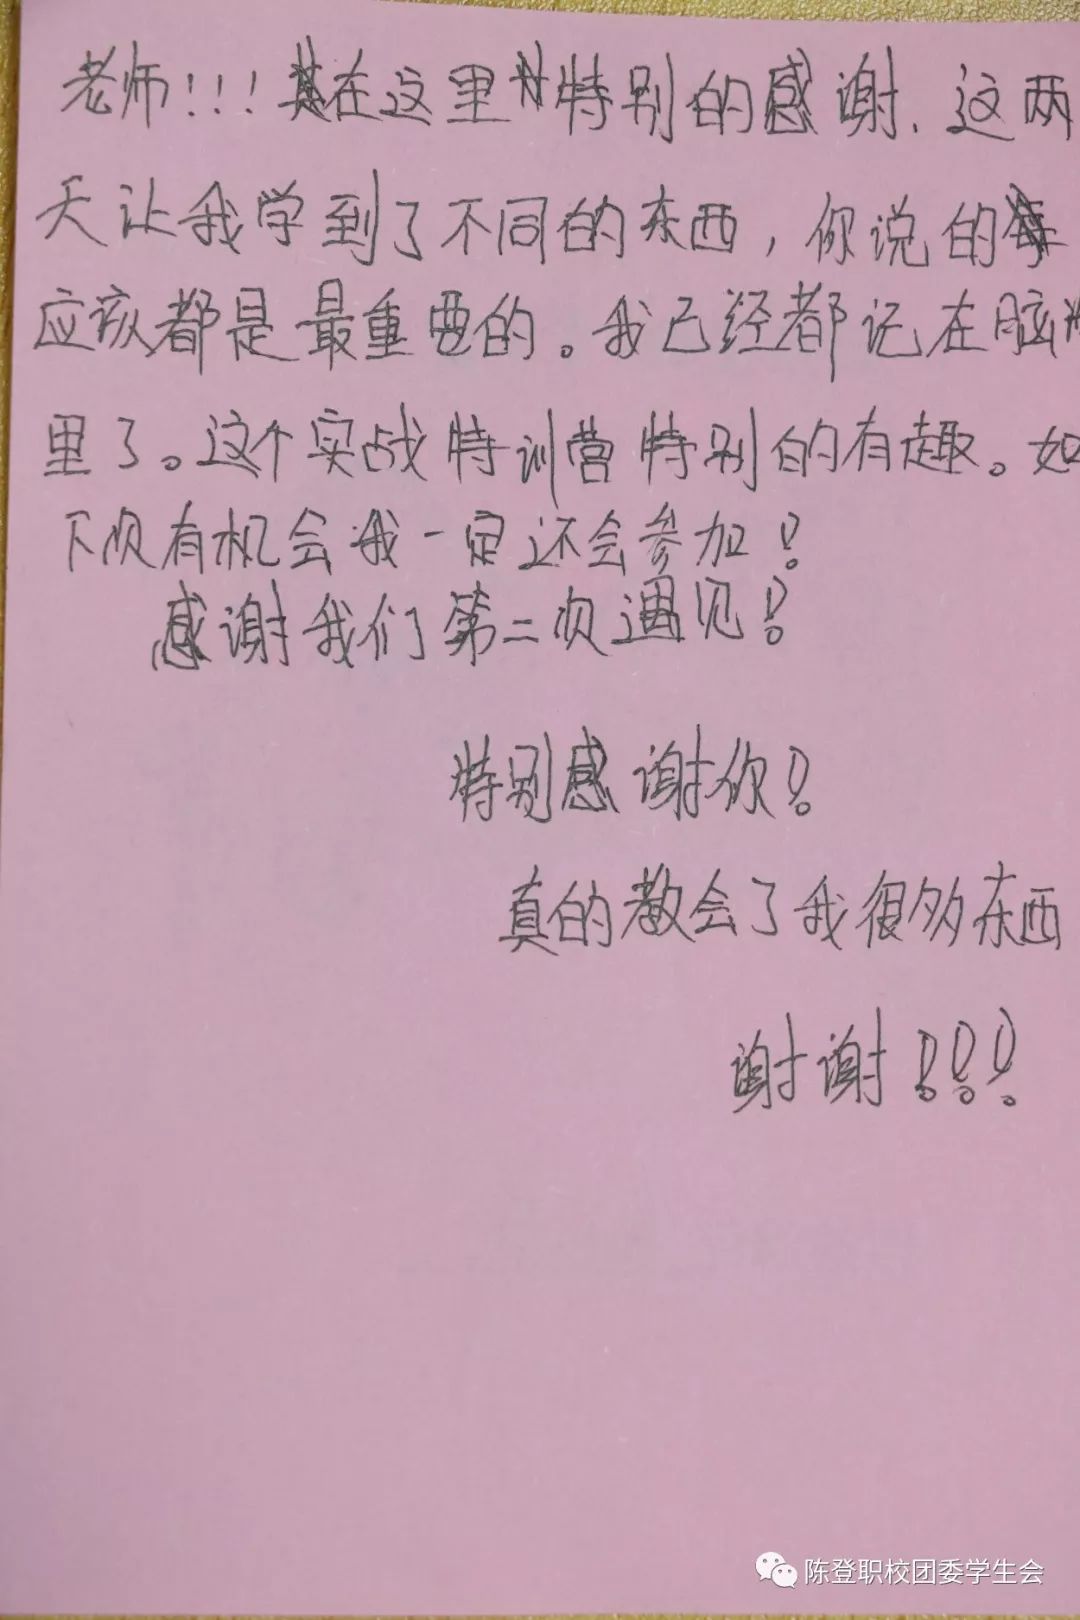 老师！！！在这里特别的感谢，这两
天让我学到了不同的东西，你说的
应该都是最重要的。我已经都记在脑
里了。这个实战特训营特别的有趣。如
下次有机会我一定还会参加！
感谢我们第二次遇见！
特别感谢你！
真的教会了我很多东西
谢谢！！！
陈登职校团委学生会